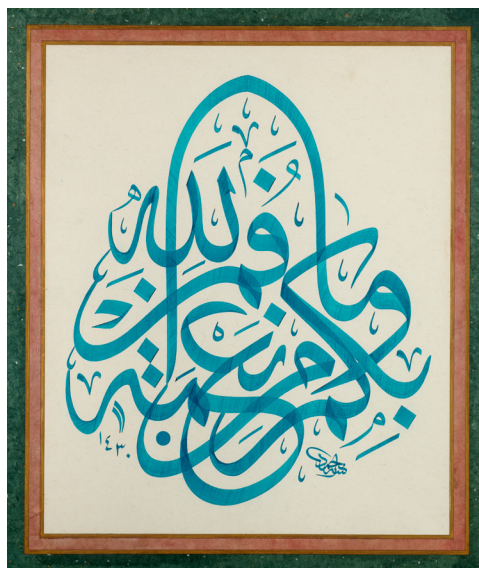 وَمَا بِكُمْ مِنْ نِعْمَةٍ فَمِنَ اللهِ
١٤٣٠